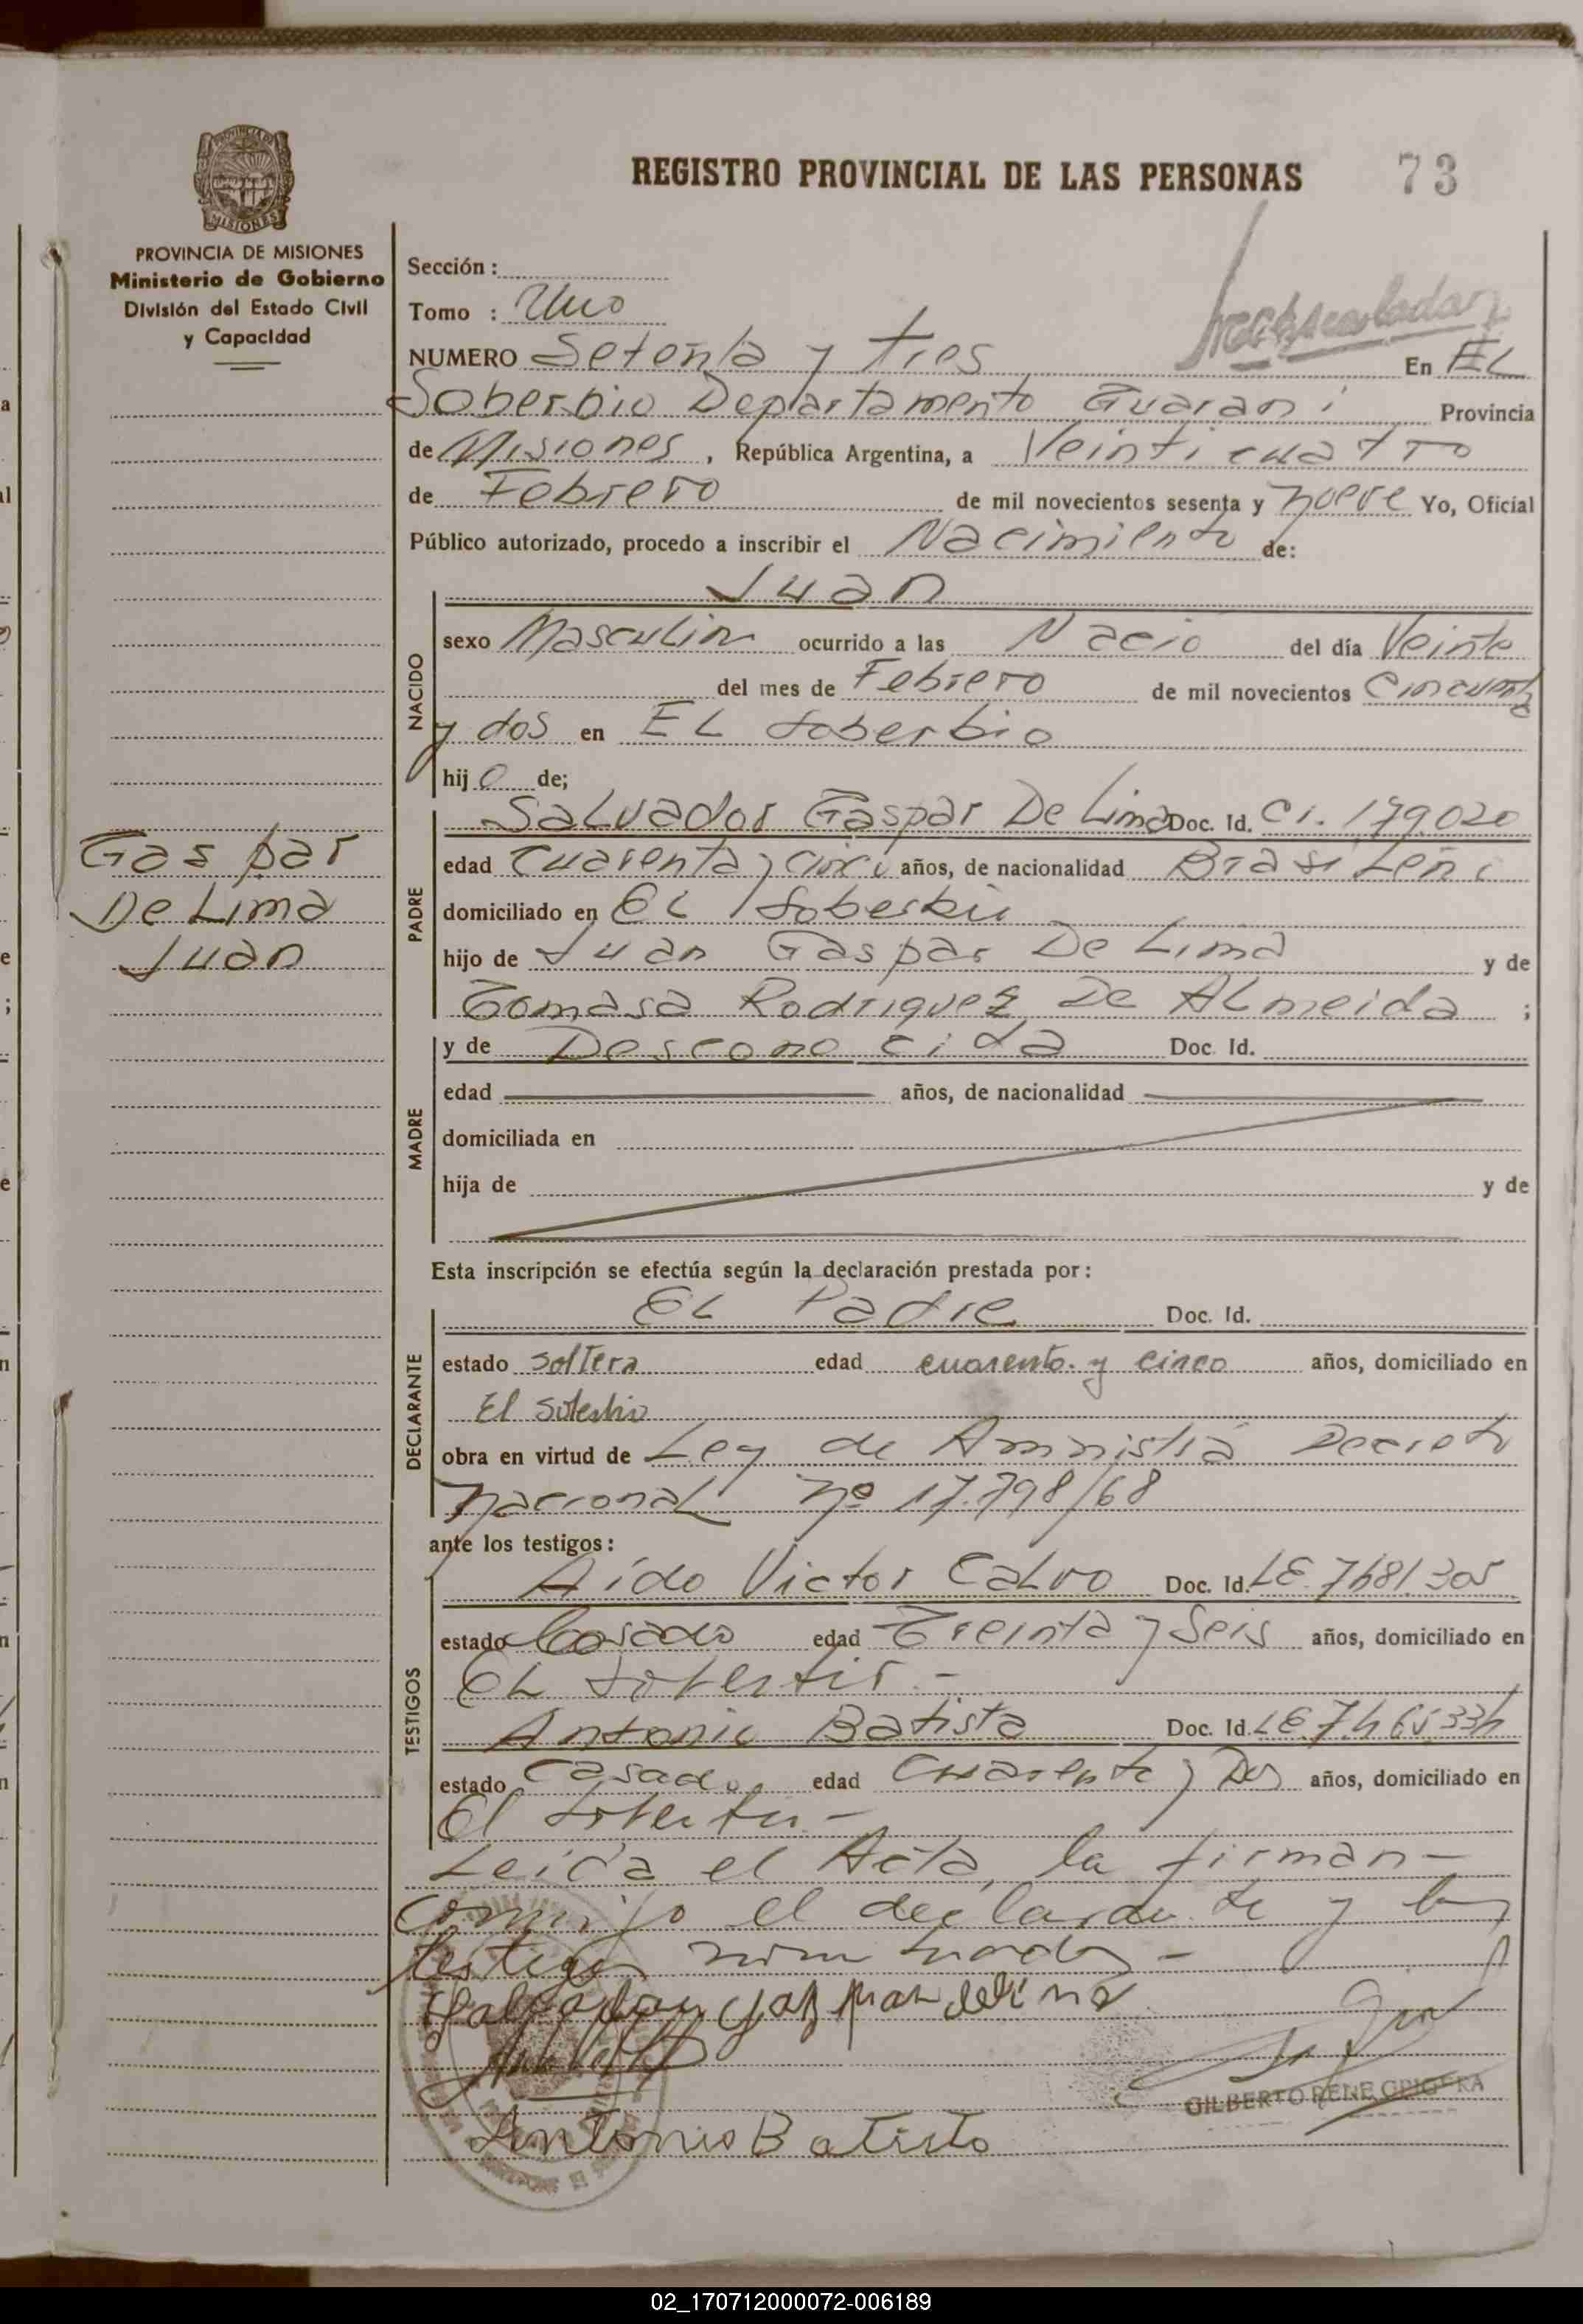 REGISTRO PROVINCIAL DE LAS PERSONAS 73
PROVINCIA DE MISIONES
PROVINCIA DE MISIONES
Ministerio de Gobierno
División del Estado Civil
y Capacidad
Gaspar
De Lima
Juan
Sección :
Tomo : Uno
NUMERO Setenta y tres En EL
Soberbio Departamento Guarani Provincia
de Misiones, República Argentina, a Veinticuatro
de Febrero de mil novecientos sesenta y nueve Yo, Oficial
Público autorizado, procedo a inscribir el Nacimiento de:
Juan
NACIDO
sexo Masculino ocurrido a las Nacio del día Veinte
del mes de Febrero de mil novecientos Cincuenta
y dos en EL Soberbio
hijo de;
PADRE
Salvador Gaspar De Lima Doc. Id. CI. 179.020
edad Cuarenta y cinco años, de nacionalidad Brasileño
domiciliado en EL Soberbio
hijo de Juan Gaspar De Lima y de
Tomasa Rodriguez De Almeida ;
MADRE
y de Desconocida Doc. Id.
edad años, de nacionalidad
domiciliada en
hija de y de
Esta inscripción se efectúa según la declaración prestada por:
DECLARANTE
EL Padre Doc. Id.
estado soltero edad cuarenta y cinco años, domiciliado en
El Soberbio
obra en virtud de Ley de Amnistia Decreto
Nacional Nº 17.798/68
ante los testigos:
TESTIGOS
Aido Victor Calvo Doc. Id. LE.
estado Casado edad Treinta y Seis años, domiciliado en
EL Soberbio.-
Antonio Batista Doc. Id. LE.
estado Casado edad Cuarenta y Dos años, domiciliado en
El Soberbio-
Leida el Acta, la firman
conmigo el declarante y los
testigos nombrados-
Salvador gaspar delima
Antonio Batista
GILBERTO RENE GRIGERA
02_170712000072-006189